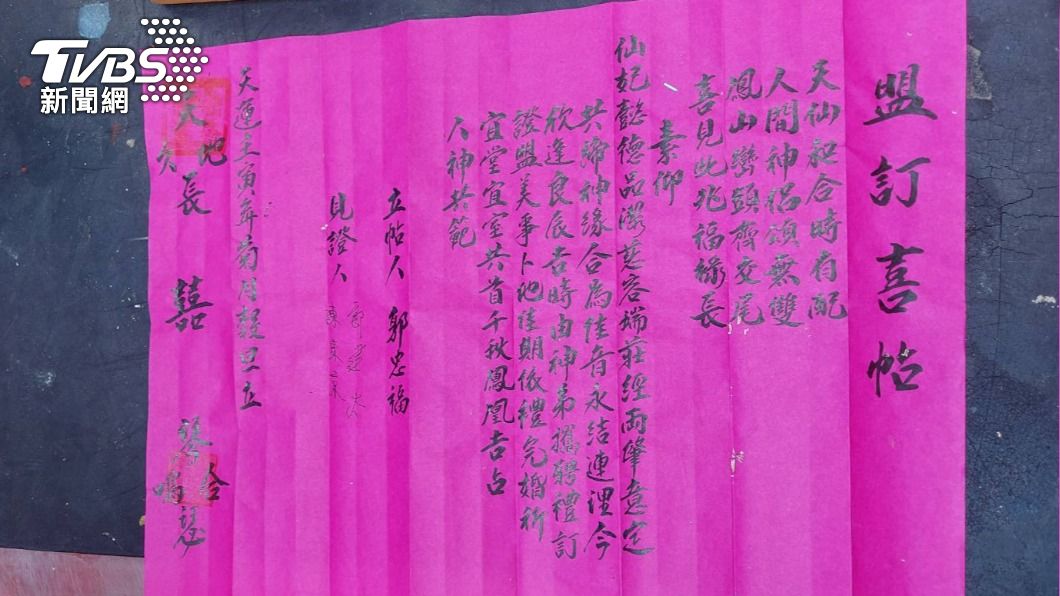 TVBS
新聞網
盟訂喜帖
天仙和合時有配
人間神侶頌無雙
鳳山巒頭齊交尾
喜見此兆福綠長
素仰
仙妃懿德品潔慈容瑞莊經兩肇意定
共締神緣合為佳音永結連理今
欣逢良辰吉時由神弟攜聘禮訂
證盟美事卜地佳期依禮完婚祈
宜堂宜室共首千秋鳳凰吉占
人神共範
立帖人 郭忠福
見證人
天運壬寅年菊月穀旦立
天長地久 囍 琴瑟合鳴